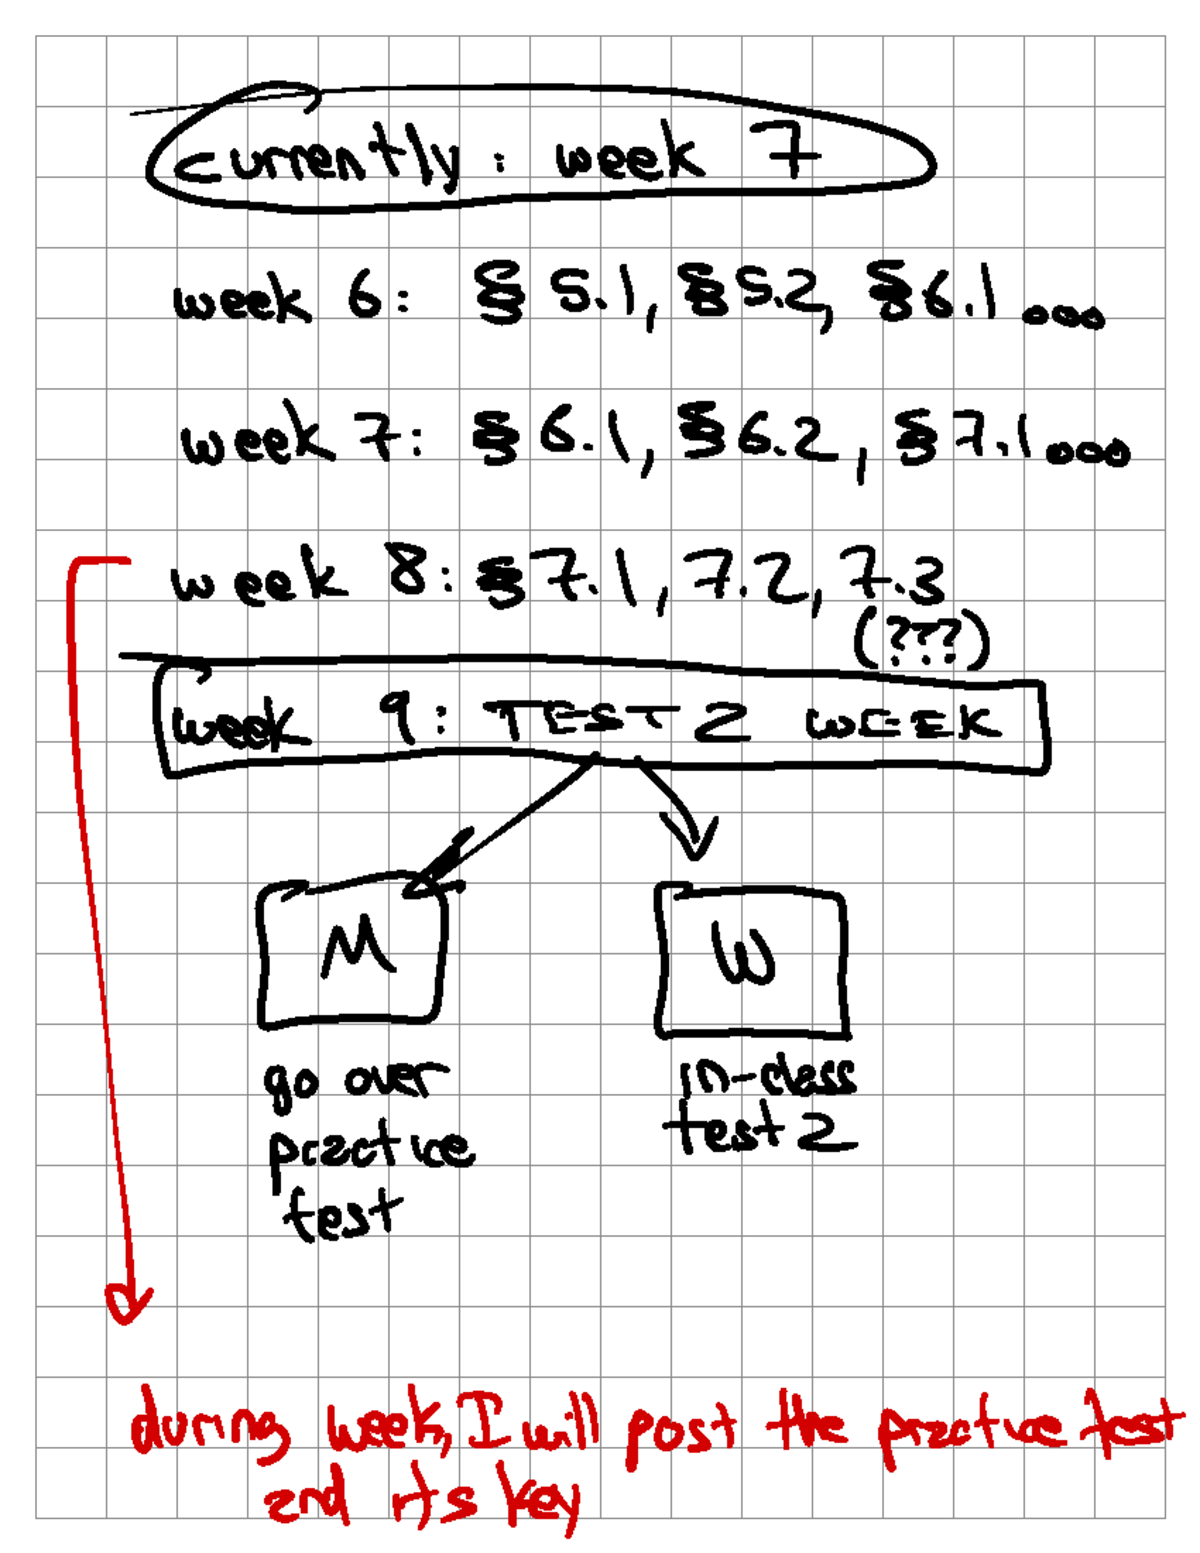 currently: week 7
week 6: § 5.1, § 5.2, § 6.1 ...
week 7: § 6.1, § 6.2, § 7.1 ...
week 8: § 7.1, 7.2, 7.3
(???)
week 9: TEST 2 WEEK
M W
go over in-class
practice test 2
test
during week, I will post the practice test
and its key